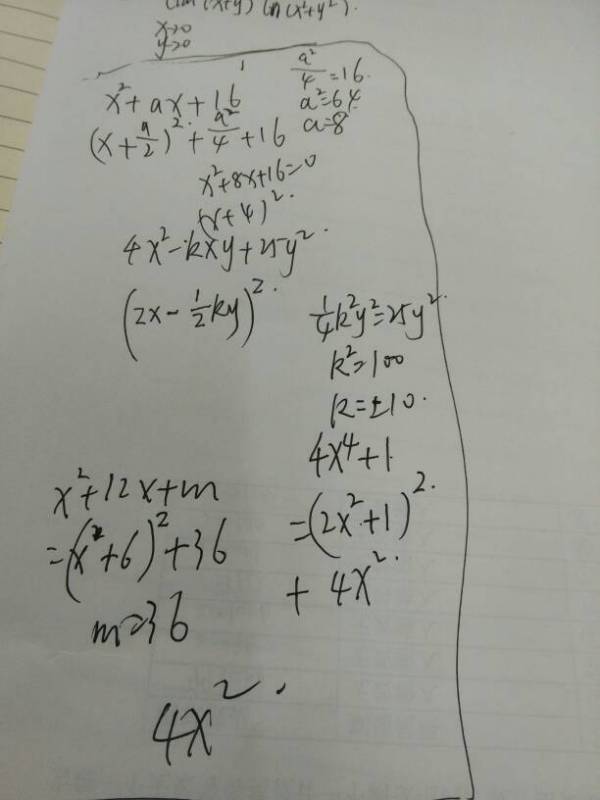 lim (x+y) ln(x²+y²).
x→0
y→0
x²+ax+16
(x+a/2)²+a²/4+16
a²/4=16.
a²=64
a=8
x²+8x+16=0
(x+4)².
4x²-kxy+25y².
(2x-1/2ky)².
1/4k²y²=25y².
k²=100
k=±10.
4x⁴+1
=(2x²+1)².
+4x².
x²+12x+m
=(x²+6)²+36
m=36
4x².